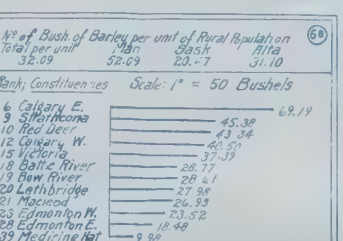 Nº of Bush. of Barley per unit of Rural Population
68
Total per unit Man Sask Alta
32.09 52.09 20.47 31.10
Rank; Constituencies Scale: 1" = 50 Bushels
6 Calgary E. 69.19
9 Strathcona 45.38
10 Red Deer 43.34
12 Calgary W. 40.50
15 Victoria 37.39
18 Battle River 28.77
19 Bow River 28.61
20 Lethbridge 27.98
21 Macleod 26.93
23 Edmonton W. 23.52
28 Edmonton E. 18.48
39 Medicine Hat 9.98